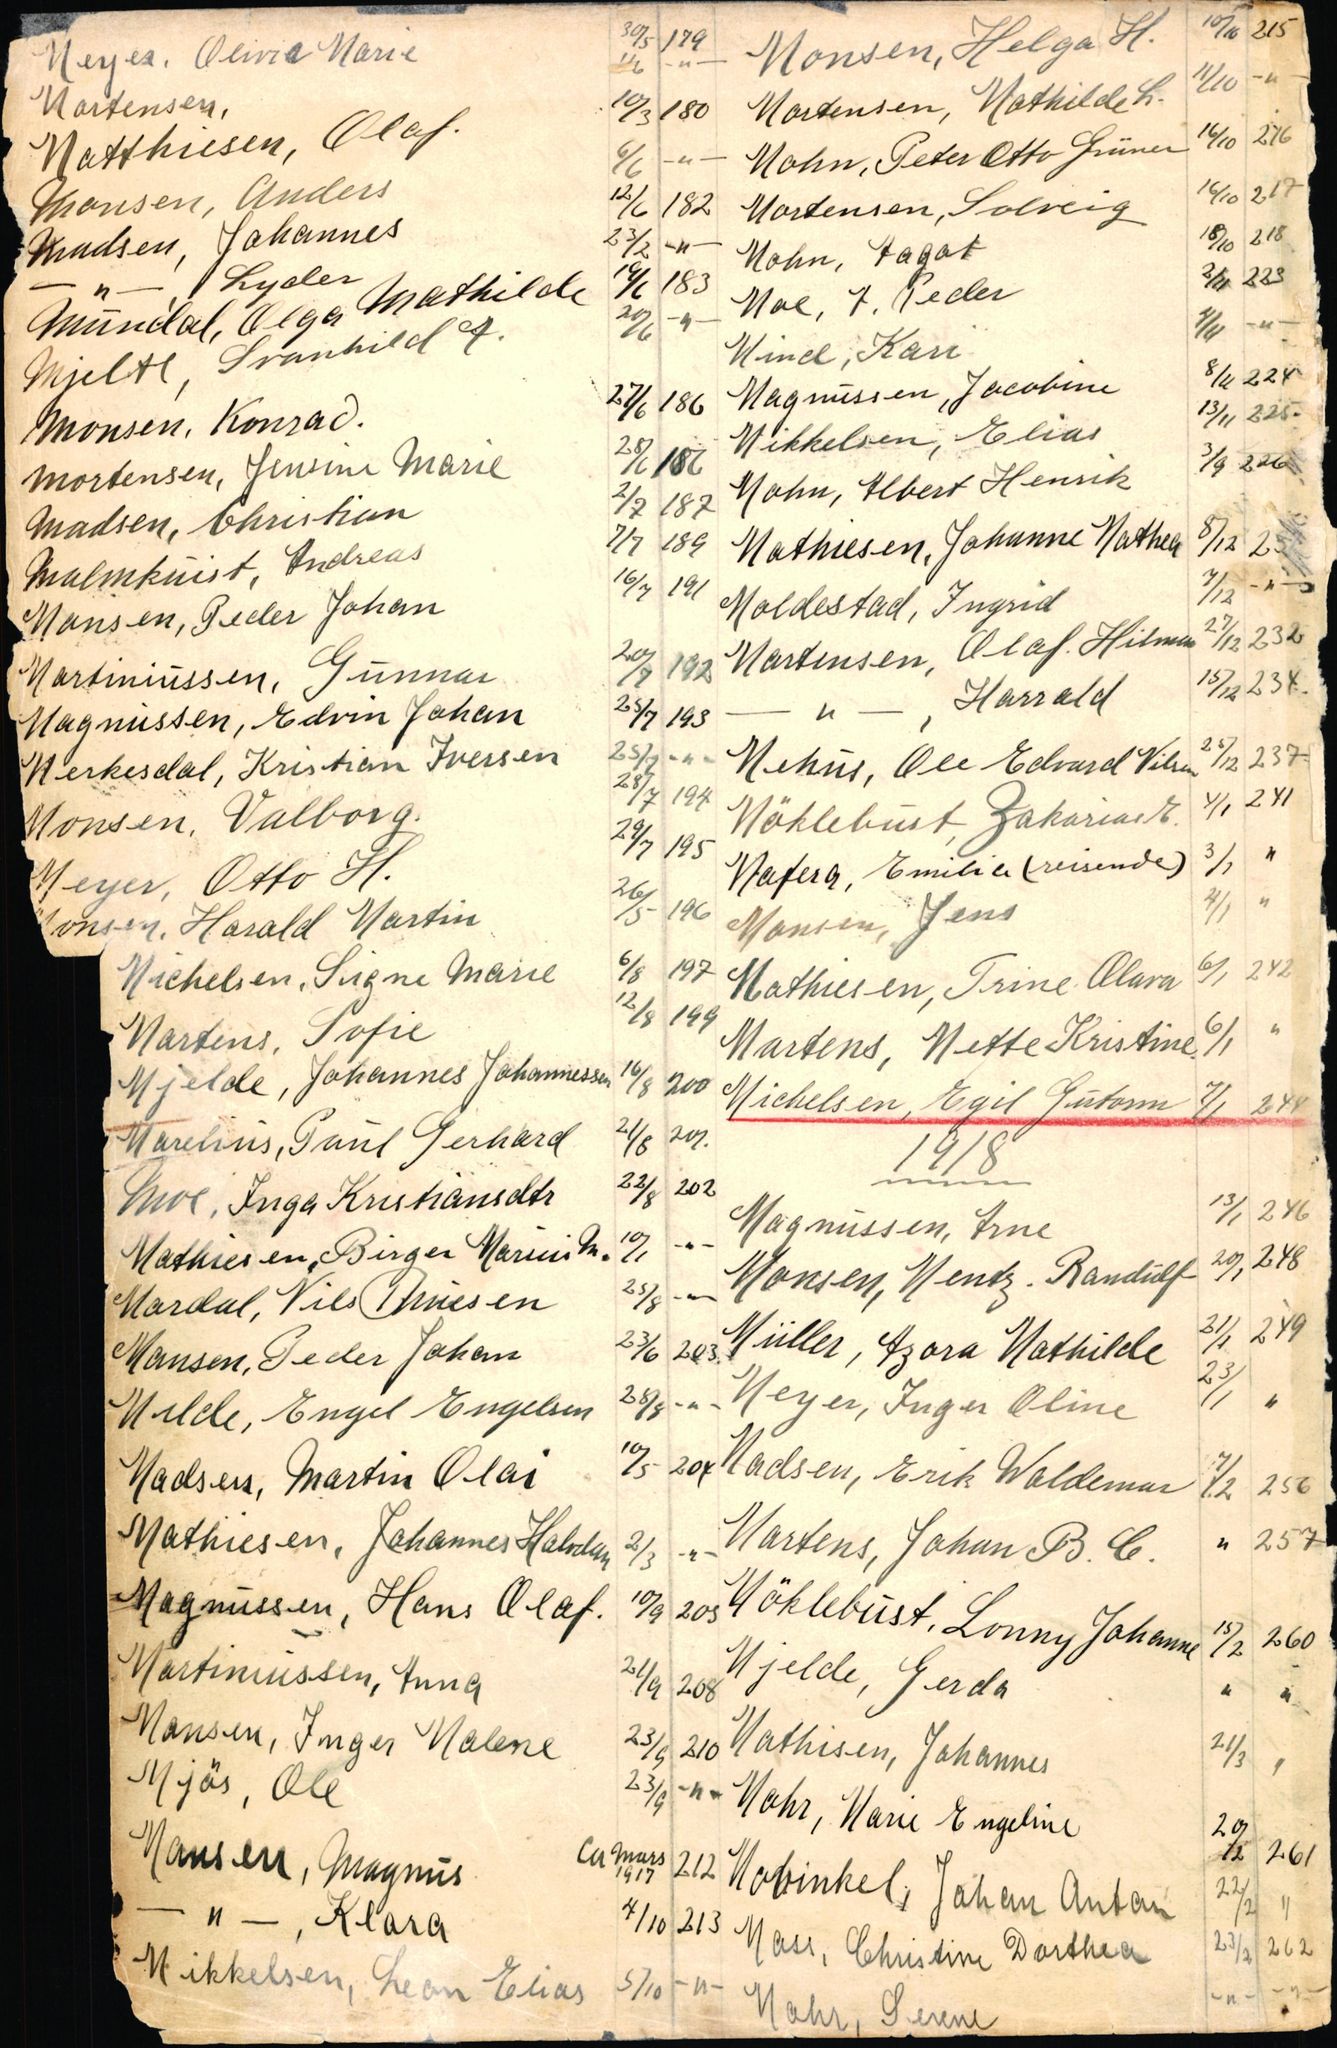 Meyer, Olivia Marie 30/5 179
Mortensen, 1/6 -"-
Matthiesen, Olaf. 10/3 180
Monsen, Anders 6/6 -"-
Madsen, Johannes 12/6 182
-"-, Lyder 23/2 -"-
Mundal, Olga Mathilde 19/6 183
Mjelte, Svanhild A. 20/6 -"-
Monsen, Konrad. 27/6 186
Mortensen, Jensine Marie 28/6 186
Madsen, Christian 2/7 187
Malmkuist, Andreas 7/7 189
Monsen, Peder Johan 16/7 191
Martiniussen, Gunnar 20/7 192
Magnussen, Edvin Johan 25/7 193
Merkesdal, Kristian Iversen 25/7 -"-
Monsen, Valborg. 28/7 194
Meyer, Otto H. 29/7 195
onsen, Harald Martin 26/5 196
Michelsen, Signe Marie 6/8 197
Martens, Sofie 12/8 199
Mjelde, Johannes Johannessen 16/8 200
Marelius, Paul Gerhard 21/8 201.
Moe, Inga Kristiansdtr 22/8 202
Mathiesen, Birger Marius M. 10/1 -"-
Mardal, Nils Thuesen 25/8 -"-
Monsen, Peder Johan 23/6 203.
Milde, Engel Engelsen 28/8 -"-
Madsen, Martin Olai 10/5 204
Mathiesen, Johannes Halvdan 2/3 -"-
Magnussen, Hans Olaf. 10/9 205
Martiniussen, Anna 21/9 208
Monsen, Inger Malene 23/9 210
Mjøs, Ole 23/9 -"-
Monsen, Magnus Ca Mars 1917 212
-"-, Klara 4/10 213
Mikkelsen, Leon Elias 5/10 -"-
Monsen, Helga H. 10/10 215
Mortensen, Mathilde L. 11/10 -"-
Mohn, Peter Otto Grüner 16/10 216
Mortensen, Solveig 16/10 217
Mohn, Aagot 18/10 218
Moe, A. Peder 2/11 223
Mind, Kari 4/11 -"-
Magnussen, Jacobine 8/11 224
Mikkelsen, Elias 13/11 225
Mohn, Albert Henrik 3/9 226
Mathiesen, Johanne Mathea 8/12
Moldestad, Ingrid 7/12 -"-
Martensen, Olaf. Hilmar 27/12 232
-"-, Harrald 15/12 234.
Mehus, Ole Edvard Nilsen 25/12 237
Möklebust, Zakarias E. 4/1 241
Mafera, Emilie (reisende) 3/1 "
Monsen, Jens 4/1 "
Mathiesen, Trine Olava 6/1 242
Martens, Mette Kristine 6/1 "
Michelsen, Egil Gutorm 7/1 244
1918
Magnussen, Arne 13/1 246
Monsen, Mentz. Randulf 20/1 248
Müller, Azora Mathilde 21/1 249
Meyer, Inger Oline 23/1 "
Madsen, Erik Waldemar 7/2 256
Martens, Johan B. C. " 257
Möklebust, Lonny Johanne 15/2 260
Mjelde, Gerda " "
Mathisen, Johannes 21/3 "
Mohr, Marie Engeline 20/12 261
Mobinkel, Johan Anton 22/2 "
Mass, Christine Dorthea 23/2 262
Mohr, Serene -"- -"-